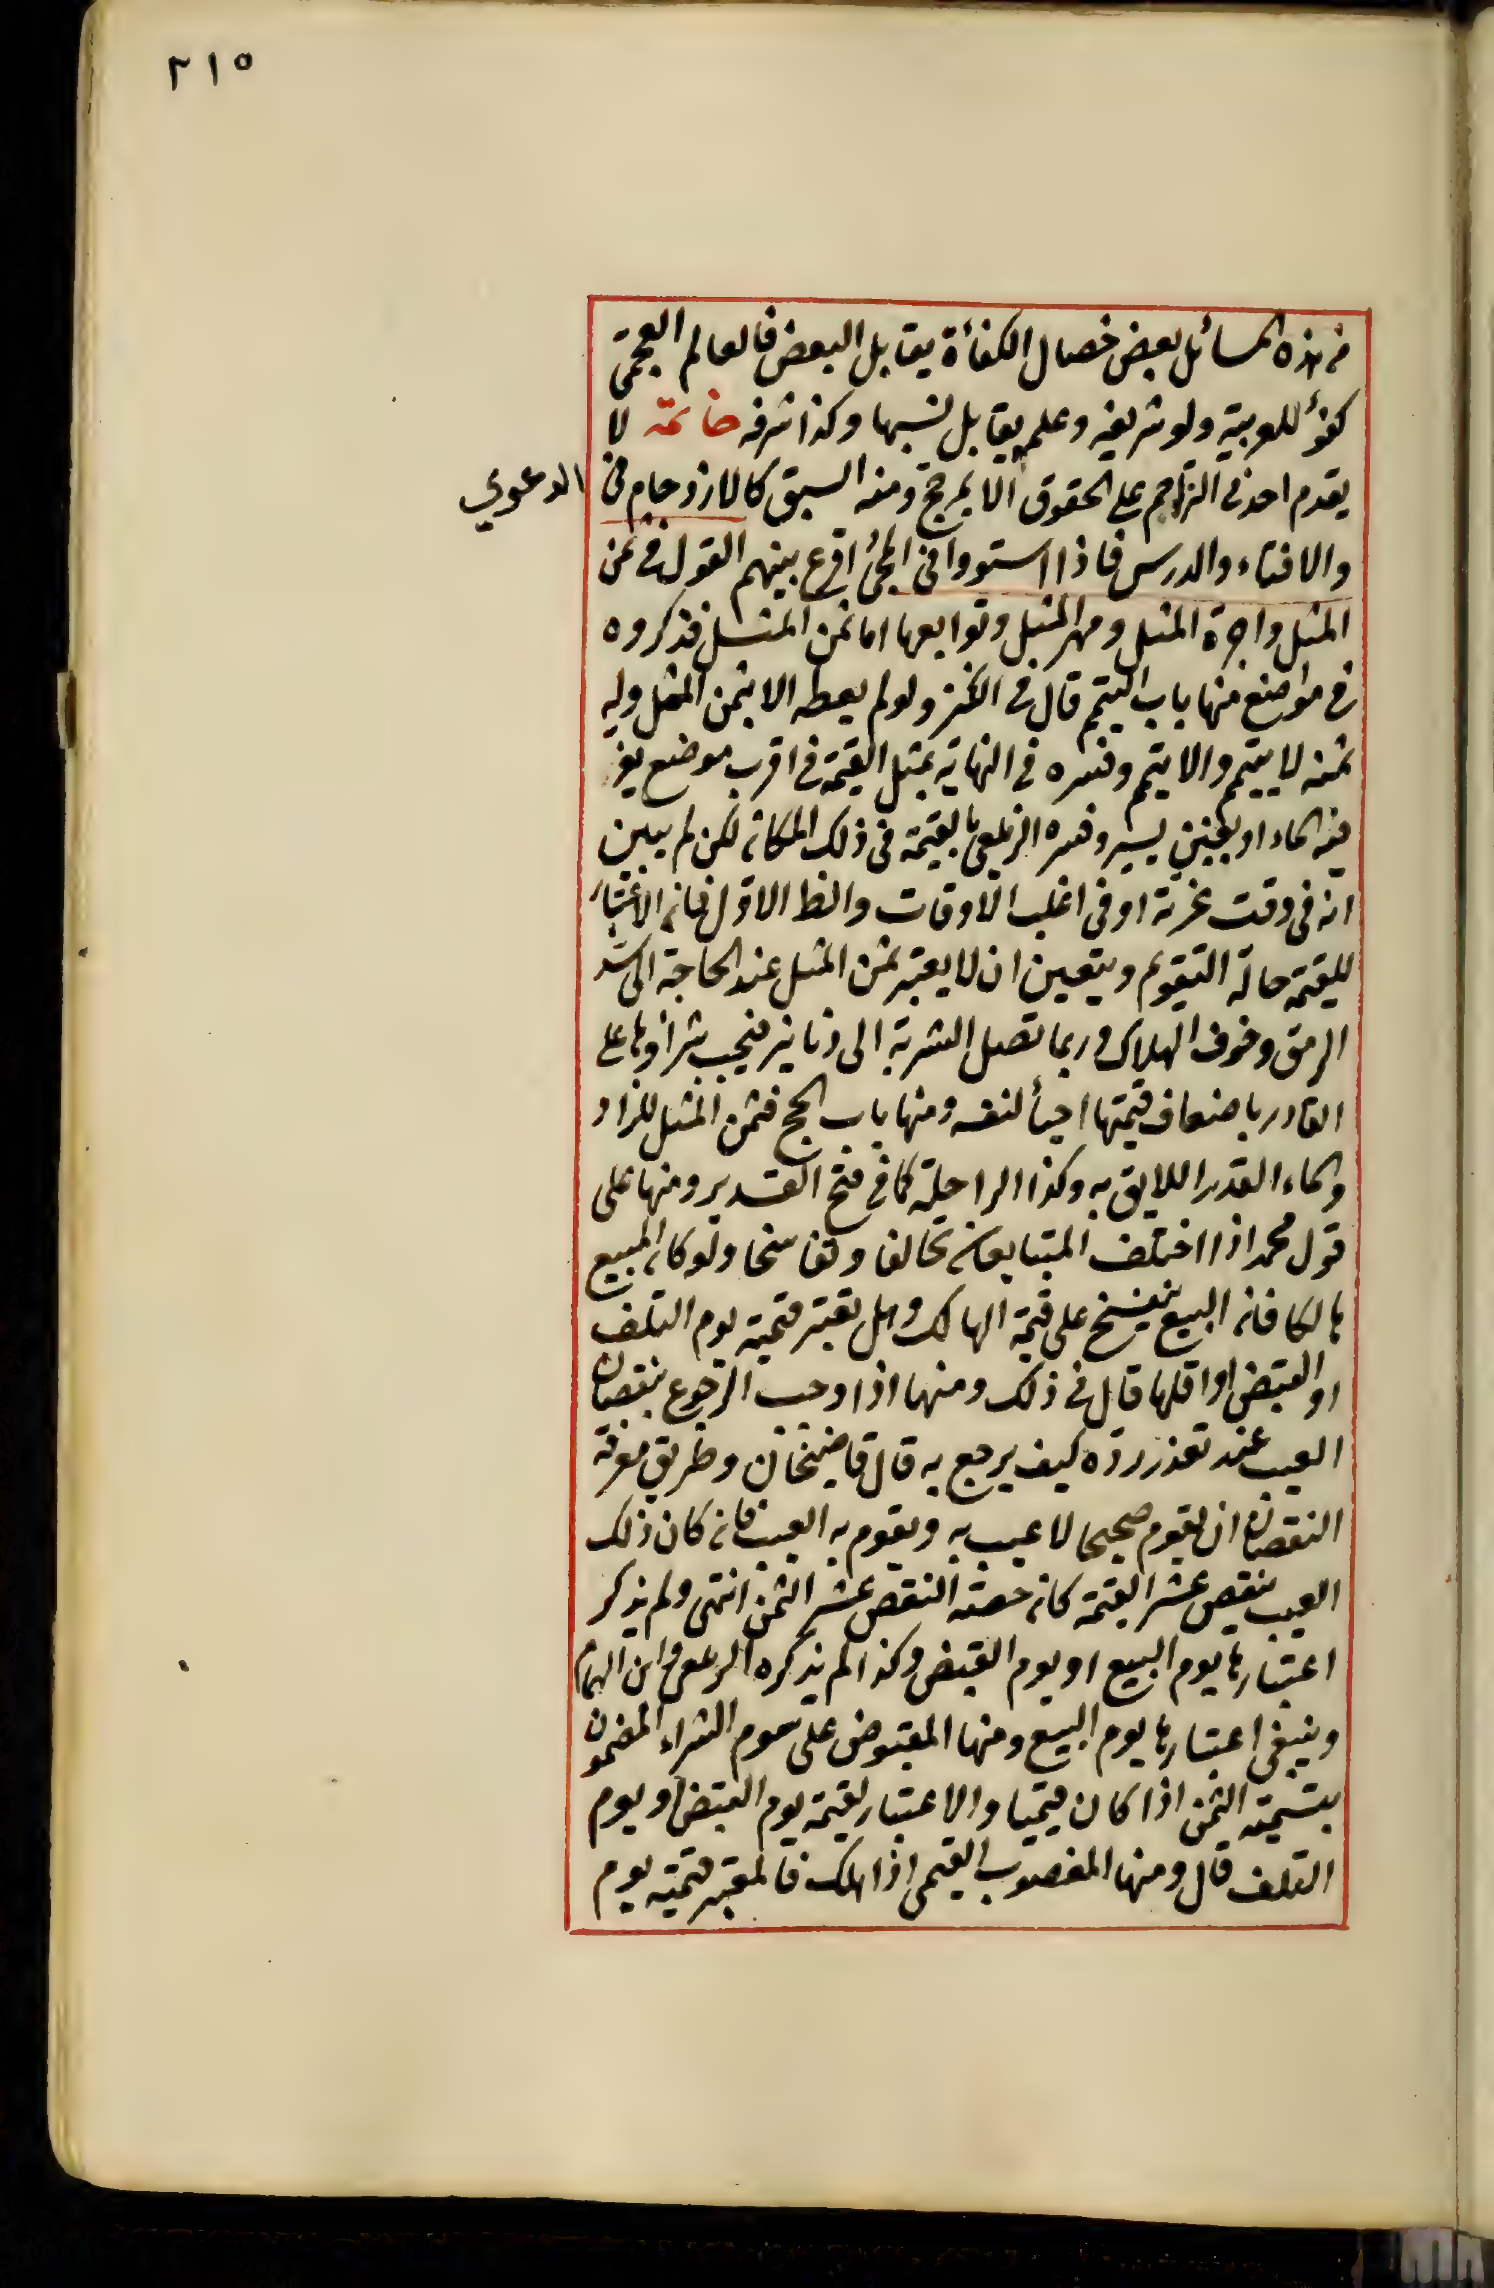 ٢١٥
من هذه المسائل بعض خصال الكفأة يقابل البعض فالعالم العجمى
كفؤ للعربية ولو شريفة وعلمه يقابل نسبها وكذا شرفه خاتمة لا
يقدم احد فى التزاحم على الحقوق الا بمرجح ومنه السبق كالازدحام فى
الدعوي
والافتاء والدرس فاذا استووا فى المجئ اقرع بينهم القول فى ثمن
المثل واجرة المثل ومهر المثل وتوابعها اما ثمن المثل فذكروه
فى مواضع منها باب التيمم قال فى الكنز ولو لم يعطه الا بثمن المثل وله
ثمنه لا يتيمم والا يتيم وفسره فى النهاية بمثل القيمة فى اقرب موضع يعز
فيه الماء او بغبن يسير وفسره الزيلعى بالقيمة فى ذلك المكان لكن لم يبين
انه فى وقت عزته او فى اغلب الاوقات والظ الاول فان الاعتبار
للقيمة حالة التقويم ويتعين ان لا يعتبر ثمن المثل عند الحاجة الى سد
الرمق وخوف الهلاك وربما تصل الشربة الى دنانير فيجب شراؤها على
القادر باضعاف قيمتها احيأ لنفسه ومنها باب الحج فثمن المثل للزاد
والماء القدر اللايق به وكذا الراحلة كما فى فتح القدير ومنها على
قول محمد اذا اختلف المتبايعان تحالفا وتفاسخا ولو كان المبيع
هالكا فان البيع ينفسخ على قيمة الهالك وهل تعتبر قيمته يوم التلف
او القبض او اقلها قال فى ذلك ومنها اذا وجب الرجوع بنقصان
العيب عند تعذر رده كيف يرجع به قال قاضيخان وطريق معرفة
النقصان ان يقوم صحيحا لا عيب به ويقوم به العيب فان كان ذلك
العيب ينقص عشر القيمة كان حصة النقص عشر الثمن انتهى ولم يذكر
اعتبارها يوم البيع او يوم القبض وكذا لم يذكره الزيلعى وابن الهمام
وينبغى اعتبارها يوم البيع ومنها المقبوض على سوم الشراء المضمون
بتسمية الثمن اذا كان قيميا والاعتبار لقيمة يوم القبض او يوم
التلف قال ومنها المغصوب القيمى اذا هلك فالمعتبر قيمته يوم